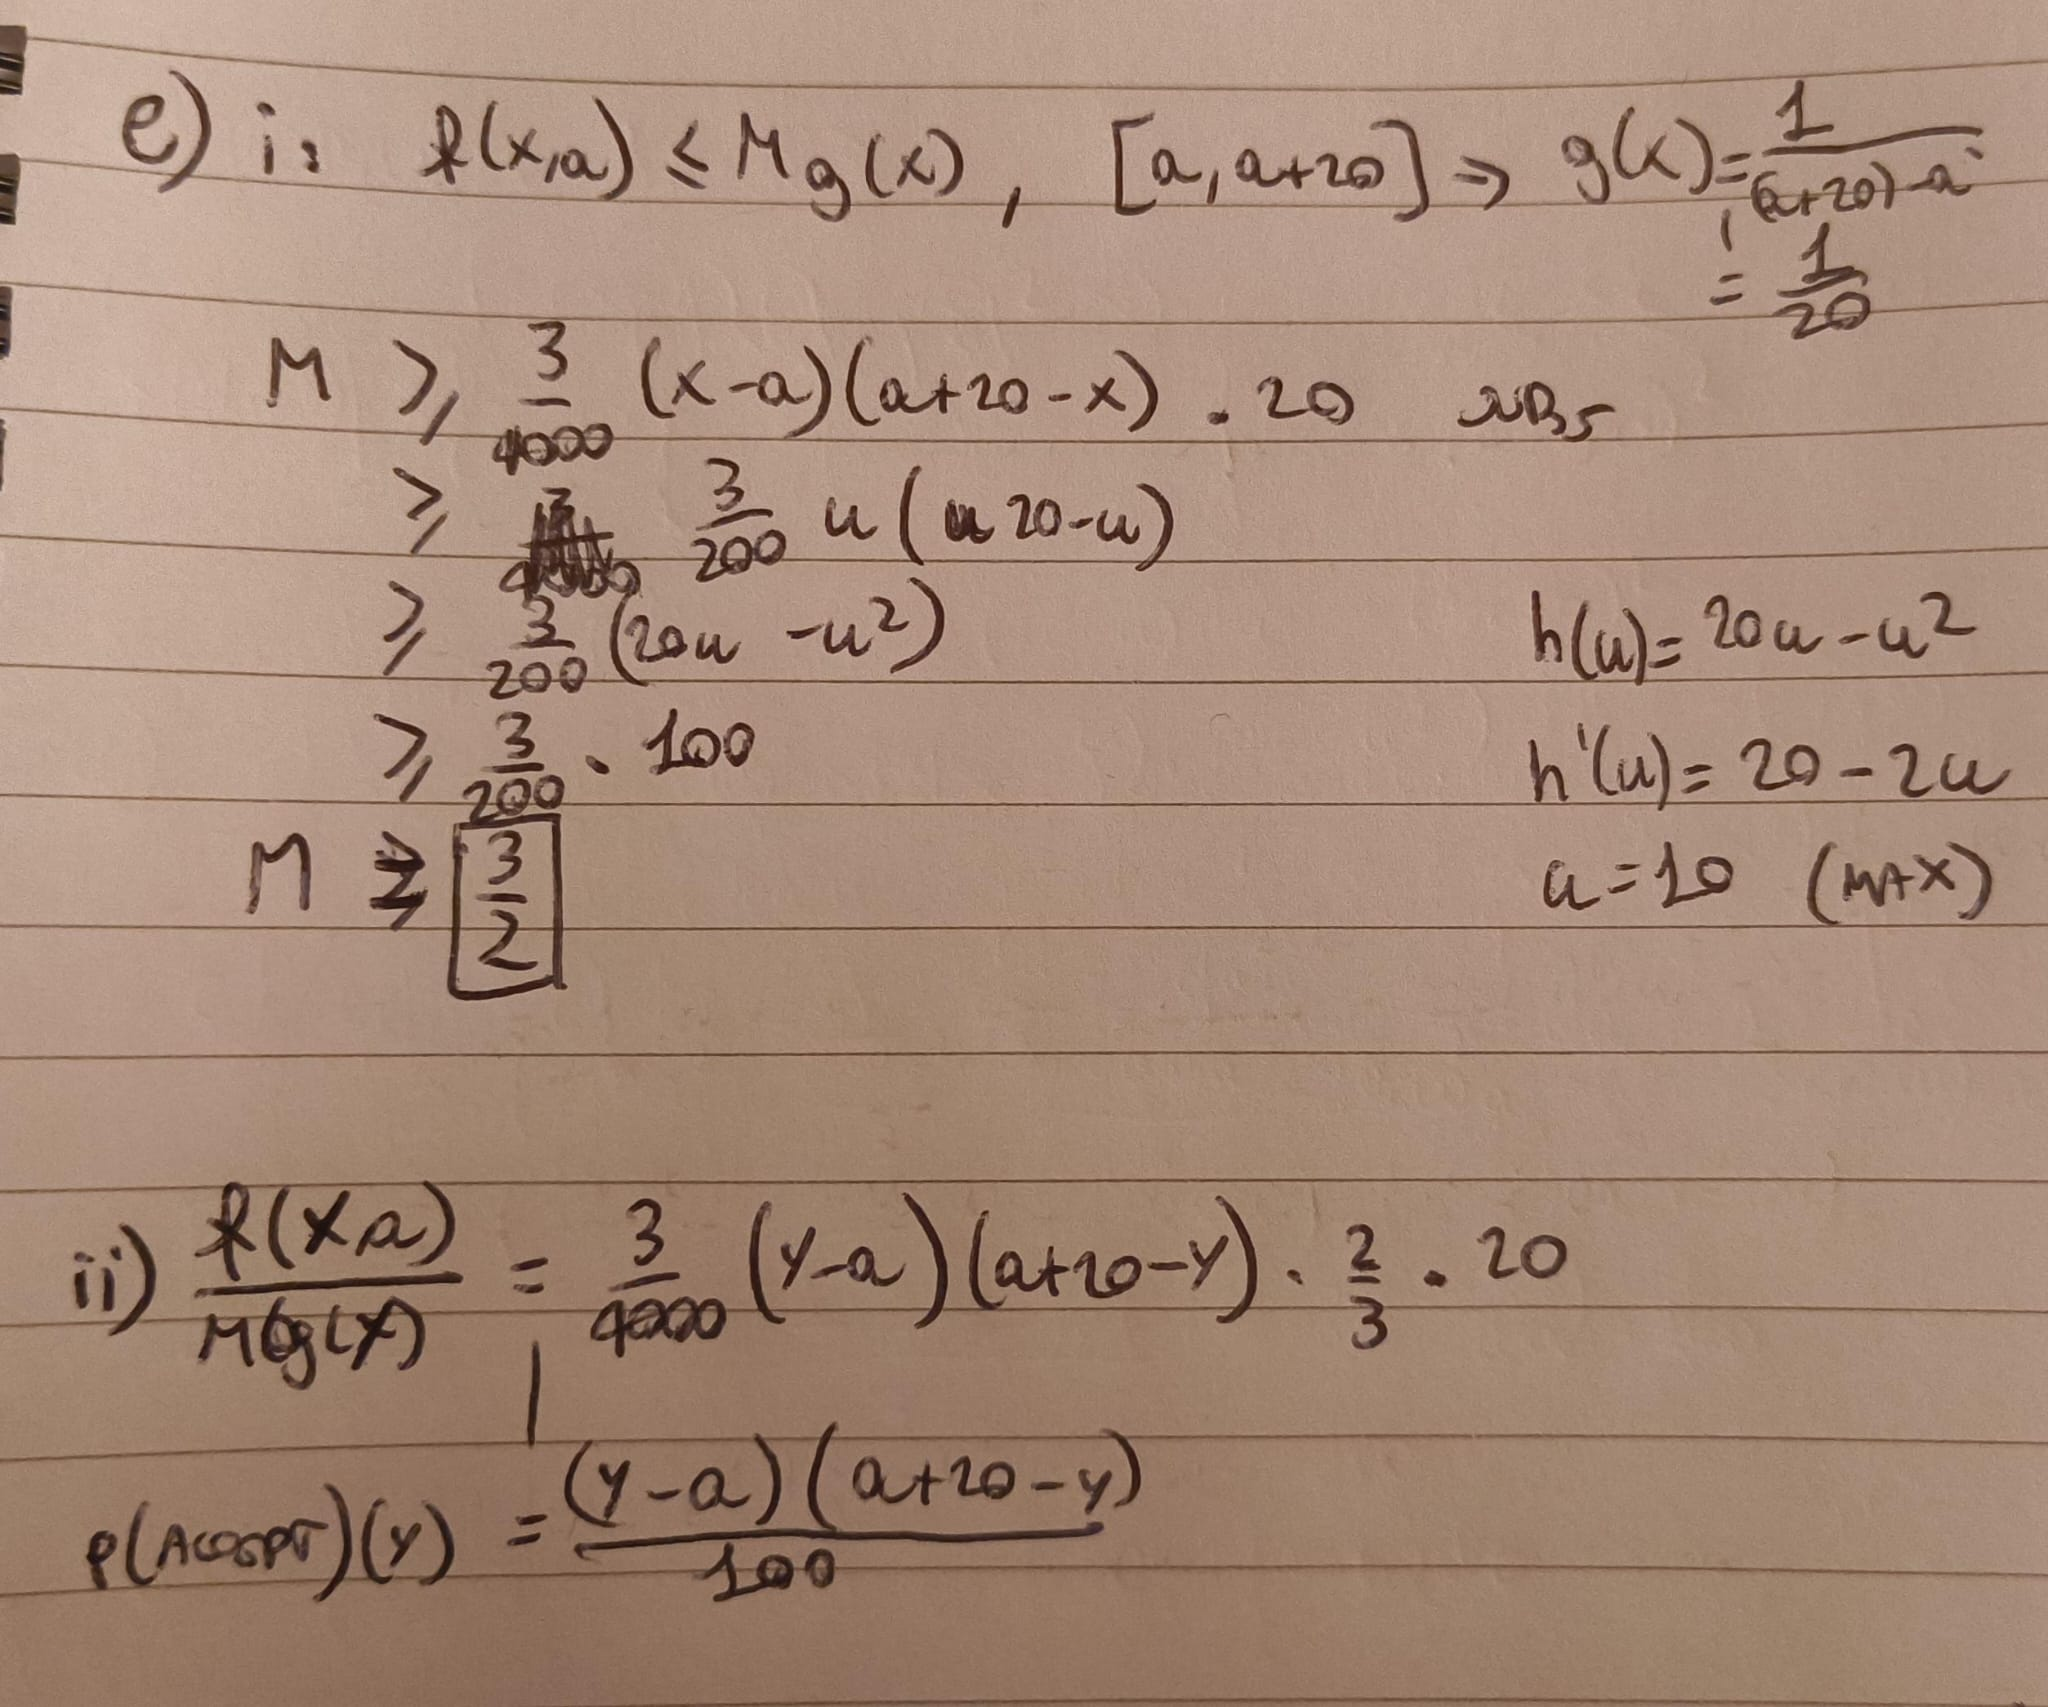 e) i: f(x,a) ≤ M g(x), [a, a+20] ⇒ g(x) = 1/((a+20)-a)
= 1/20
M ≥ 3/4000 (x-a)(a+20-x) · 20
≥ 3/200 u(20-u)
≥ 3/200 (20u - u²) h(u) = 20u - u²
≥ 3/200 · 100 h'(u) = 20 - 2u
M ≥ 3/2 u = 10 (MAX)
ii) f(x,a)/(M g(x)) = 3/4000 (y-a)(a+20-y) · 2/3 · 20
P(ACCEPT)(y) = (y-a)(a+20-y)/100